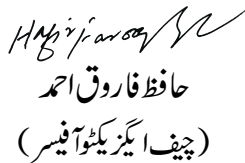 حافظ فاروق احمد
(چیف ایگزیکٹو آفیسر)